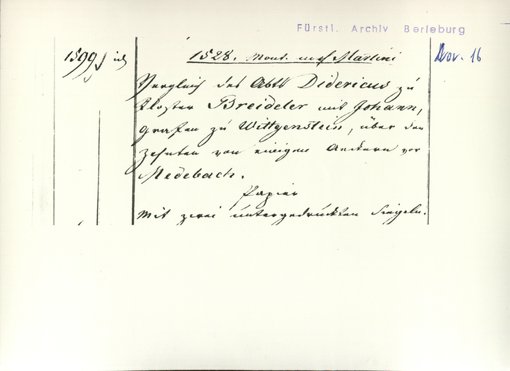 Fürstl. Archiv Berleburg
1599
1528. Mont. nach Martini
Nov. 16
Vergleich des Abts Didericus zu
Kloster Breideler mit Johann,
Grafen zu Wittgenstein, über den
Zehnten von einigen Aeckern vor
Medebach.
Papier
Mit zwei untergedruckten Siegeln.